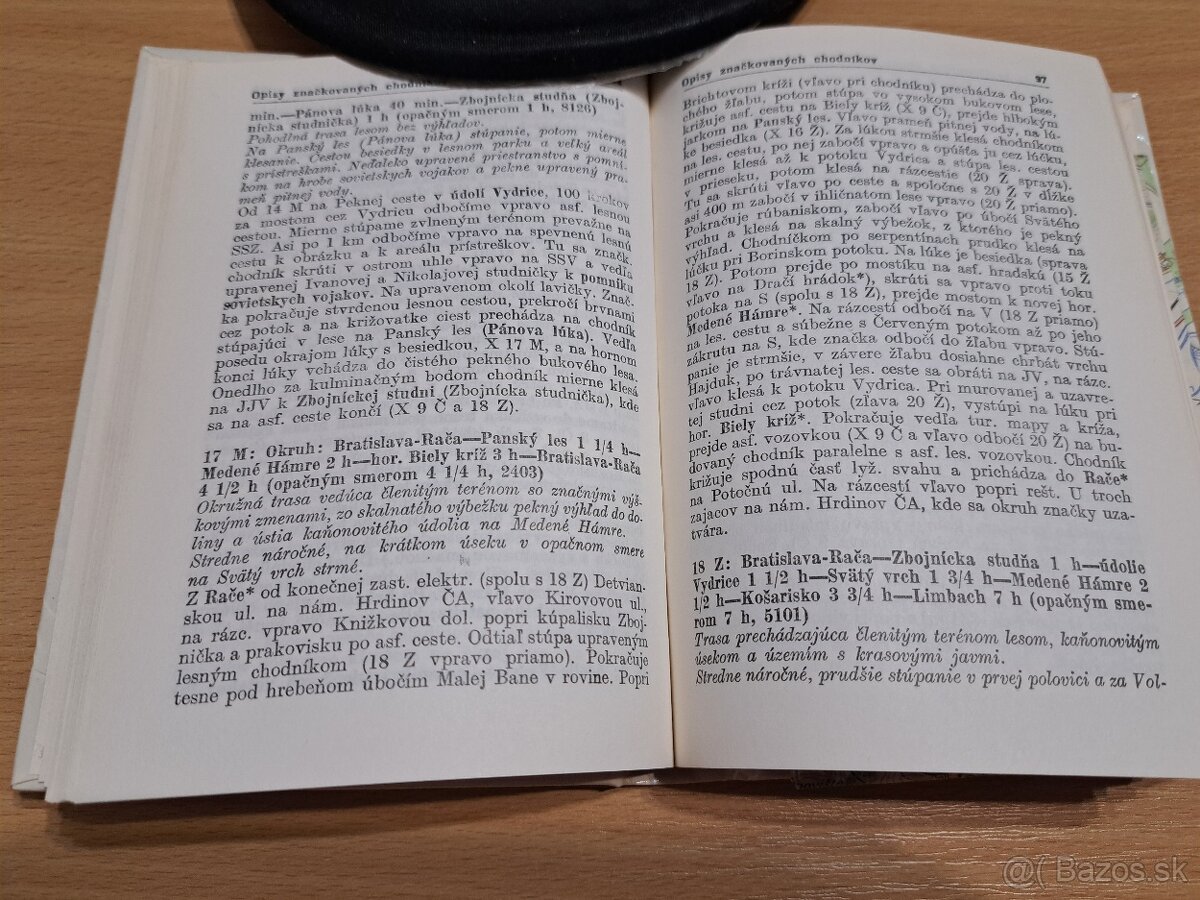 Opisy značkovaných
min.—Pánova lúka 40 min.—Zbojnícka studňa (Zboj-
nícka studnička) 1 h (opačným smerom 1 h, 8126)
Pohodlná trasa lesom bez výhľadov.
Na Panský les (Pánova lúka) stúpanie, potom mierne
klesanie. Cestou besiedky v lesnom parku a veľký areál
s prístreškami. Neďaleko upravené priestranstvo s pomní-
kom na hrobe sovietskych vojakov a pekne upravený pra-
meň pitnej vody.
Od 14 M na Peknej ceste v údolí Vydrice, 100 krokov
za mostom cez Vydricu odbočíme vpravo asf. lesnou
cestou. Mierne stúpame zvlneným terénom prevažne na
SSZ. Asi po 1 km odbočíme vpravo na spevnenú lesnú
cestu k obrázku a k areálu prístreškov. Tu sa značk.
chodník skrúti v ostrom uhle vpravo na SSV a vedľa
upravenej Ivanovej a Nikolajovej studničky k pomníku
sovietskych vojakov. Na upravenom okolí lavičky. Znač-
ka pokračuje stvrdenou lesnou cestou, prekročí brvnami
cez potok a na križovatke ciest prechádza na chodník
stúpajúci v lese na Panský les (Pánova lúka). Vedľa
posedu okrajom lúky s besiedkou, X 17 M, a na hornom
konci lúky vchádza do čistého pekného bukového lesa.
Onedlho za kulminačným bodom chodník mierne klesá
na JJV k Zbojníckej studni (Zbojnícka studnička), kde
sa na asf. ceste končí (X 9 Č a 18 Z).
17 M: Okruh: Bratislava-Rača—Panský les 1 1/4 h—
Medené Hámre 2 h—hor. Biely kríž 3 h—Bratislava-Rača
4 1/2 h (opačným smerom 4 1/4 h, 2403)
Okružná trasa vedúca členitým terénom so značnými výš-
kovými zmenami, zo skalnatého výbežku pekný výhľad do do-
liny a ústia kaňonovitého údolia na Medené Hámre.
Stredne náročné, na krátkom úseku v opačnom smere
na Svätý vrch strmé.
Z Rače* od konečnej zast. elektr. (spolu s 18 Z) Detvian-
skou ul. na nám. Hrdinov ČA, vľavo Kirovovou ul.,
na rázc. vpravo Knižkovou dol. popri kúpalisku Zboj-
nička a prakovisku po asf. ceste. Odtiaľ stúpa upraveným
lesným chodníkom (18 Z vpravo priamo). Pokračuje
tesne pod hrebeňom úbočím Malej Bane v rovine. Popri
Opisy značkovaných chodníkov 97
Brichtovom kríži (vľavo pri chodníku) prechádza do plo-
chého žľabu, potom stúpa vo vysokom bukovom lese,
križuje asf. cestu na Biely kríž (X 9 Č), prejde hlbokým
jarkom na Panský les. Vľavo prameň pitnej vody, na lú-
ke besiedka (X 16 Ž). Za lúkou strmšie klesá chodníkom
na les. cestu, po nej zabočí vpravo a opúšťa ju cez lúčku,
mierne klesá až k potoku Vydrica a stúpa les. cestou
v prieseku, potom klesá na rázcestie (20 Ž sprava).
Tu sa skrúti vľavo po ceste a spoločne s 20 Ž v dĺžke
asi 400 m zabočí v ihličnatom lese vpravo (20 Ž priamo).
Pokračuje rúbaniskom, zabočí vľavo po úbočí Svätého
vrchu a klesá na skalný výbežok, z ktorého je pekný
výhľad. Chodníčkom po serpentínach prudko klesá na
lúčku pri Borinskom potoku. Na lúke je besiedka (sprava
18 Z). Potom prejde po mostíku na asf. hradskú (15 Ž
vľavo na Dračí hrádok*), skrúti sa vpravo proti toku
potoka na S (spolu s 18 Z), prejde mostom k novej hor.
Medené Hámre*. Na rázcestí odbočí na V (18 Z priamo)
na les. cestu a súbežne s Červeným potokom až po jeho
zákrutu na S, kde značka odbočí do žľabu vpravo. Stú-
panie je strmšie, v závere žľabu dosiahne chrbát vrchu
Hajduk, po trávnatej les. ceste sa obráti na JV, na rázc.
vľavo klesá k potoku Vydrica. Pri murovanej a uzavre-
tej studni cez potok (zľava 20 Ž), vystúpi na lúku pri
hor. Biely kríž*. Pokračuje vedľa tur. mapy a kríža,
prejde asf. vozovkou (X 9 Č a vľavo odbočí 20 Ž) na bu-
dovaný chodník paralelne s asf. les. vozovkou. Chodník
križuje spodnú časť lyž. svahu a prichádza do Rače*
na Potočnú ul. Na rázcestí vľavo popri rešt. U troch
zajacov na nám. Hrdinov ČA, kde sa okruh značky uza-
tvára.
18 Z: Bratislava-Rača—Zbojnícka studňa 1 h—údolie
Vydrice 1 1/2 h—Svätý vrch 1 3/4 h—Medené Hámre 2
1/2 h—Košarisko 3 3/4 h—Limbach 7 h (opačným sme-
rom 7 h, 5101)
Trasa prechádzajúca členitým terénom lesom, kaňonovitým
úsekom a územím s krasovými javmi.
Stredne náročné, prudšie stúpanie v prvej polovici a za Vol-
@( Bazos.sk